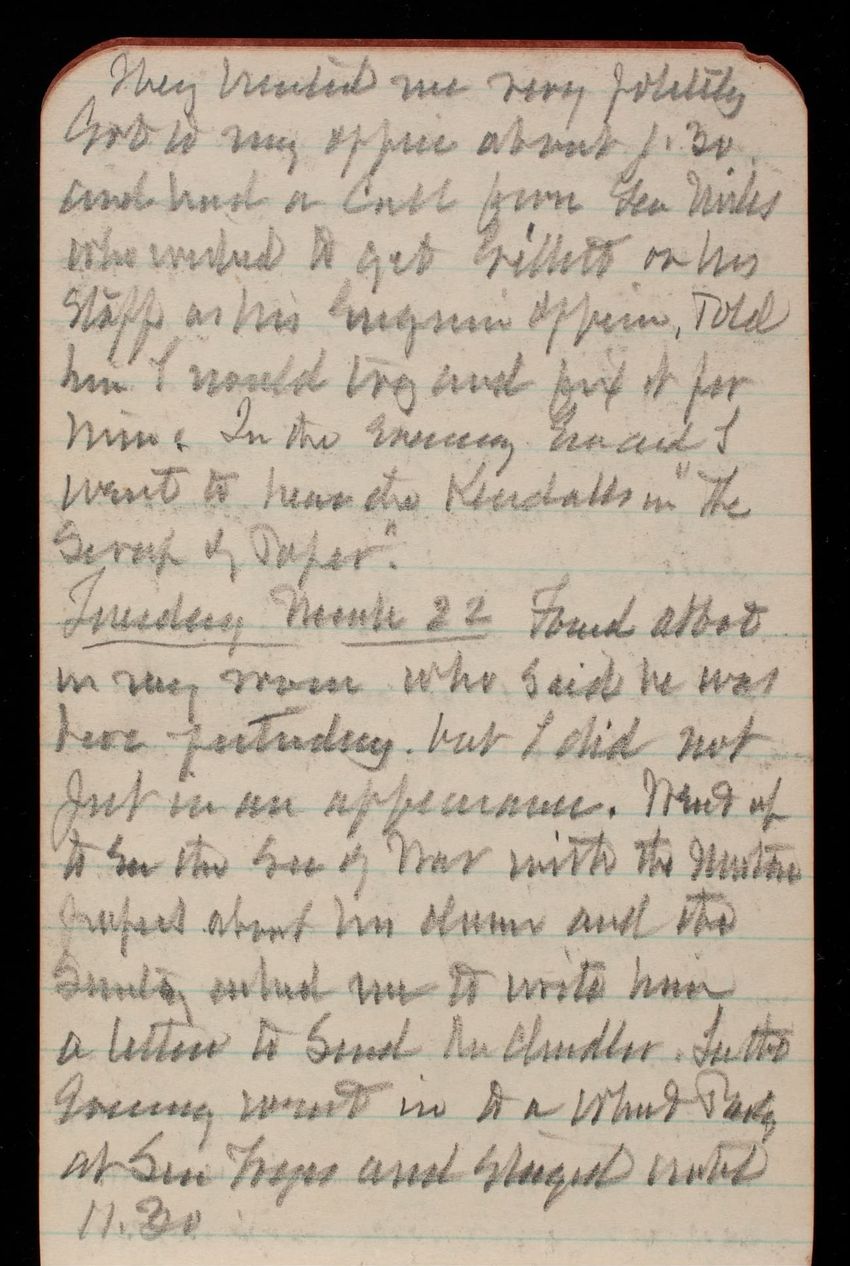 They treated me very politely
Got to my office about 1.30
and had a call from Gen Miles
who wished to get Gillett on his
Staff as his Engineer officer, Told
him I would try and fix it for
him. In the Evening Eva and I
went to hear the Kendalls in "The
Scrap of Paper".
Tuesday March 22 Found Abbot
in my room who said he was
here yesterday. but I did not
put in an appearance. Went up
to See the Sec of War with the
about his and the
Secretary asked me to write him
a letter to Send Chandler. In the
Evening went in to a Whist Party
at Gen and Stayed until
11.30